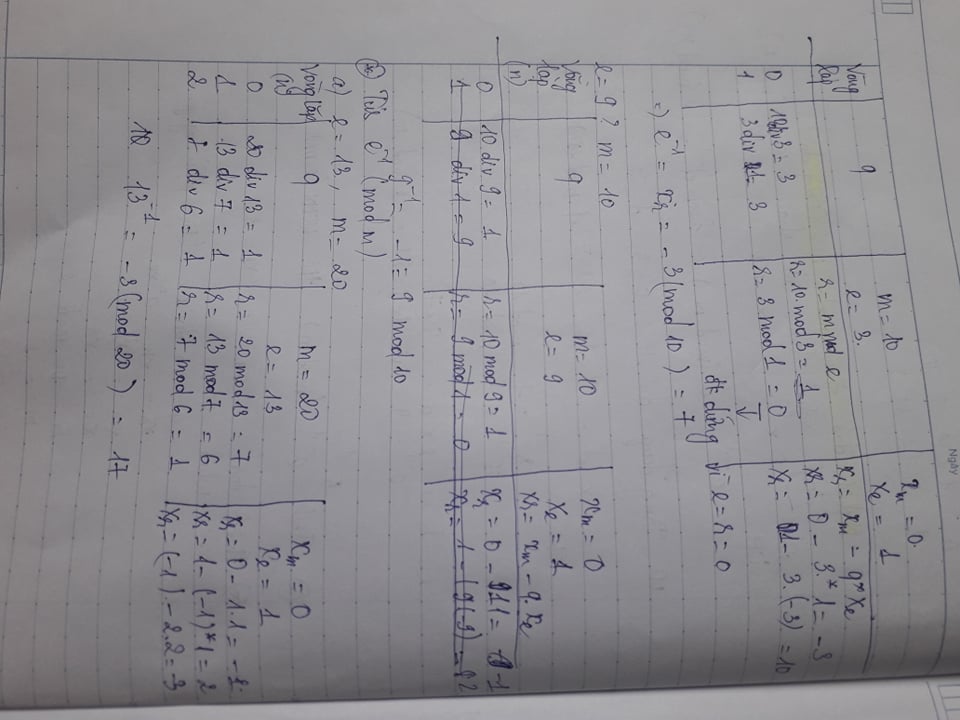 Ngày
Vòng lặp | q | m = 10 | x_m = 0
e = 3. | x_e = 1
r = m mod e | x_r = x_m - q * x_e
0 | 10 div 3 = 3 | r = 10 mod 3 = 1 | x_r = 0 - 3 * 1 = -3
1 | 3 div 1 = 3 | r = 3 mod 1 = 0 | x_r = 1 - 3.(-3) = 10
đk dừng vì e = r = 0
=) e^-1 = x_r = -3 (mod 10) = 7
e = 9 ? m = 10
Vòng lặp (n) | q | m = 10 | x_m = 0
e = 9 | x_e = 1
x_r = x_m - q. x_e
0 | 10 div 9 = 1 | r = 10 mod 9 = 1 | x_r = 0 - 1.1 = -1
1 | 9 div 1 = 9 | r = 9 mod 1 = 0 | x_r = 1 - (9(-9)
9^-1 = -1 = 9 mod 10
e^-1 (mod m)
a) e = 13, m = 20
Vòng lặp (n) | q | m = 20 | x_m = 0
e = 13 | x_e = 1
0 | 20 div 13 = 1 | r = 20 mod 13 = 7 | x_r = 0 - 1.1 = -1
1 | 13 div 7 = 1 | r = 13 mod 7 = 6 | x_r = 1 - (-1) * 1 = 2
2 | 7 div 6 = 1 | r = 7 mod 6 = 1 | x_r = (-1) - 2.2 = -3
13^-1 = -3 (mod 20) = 17